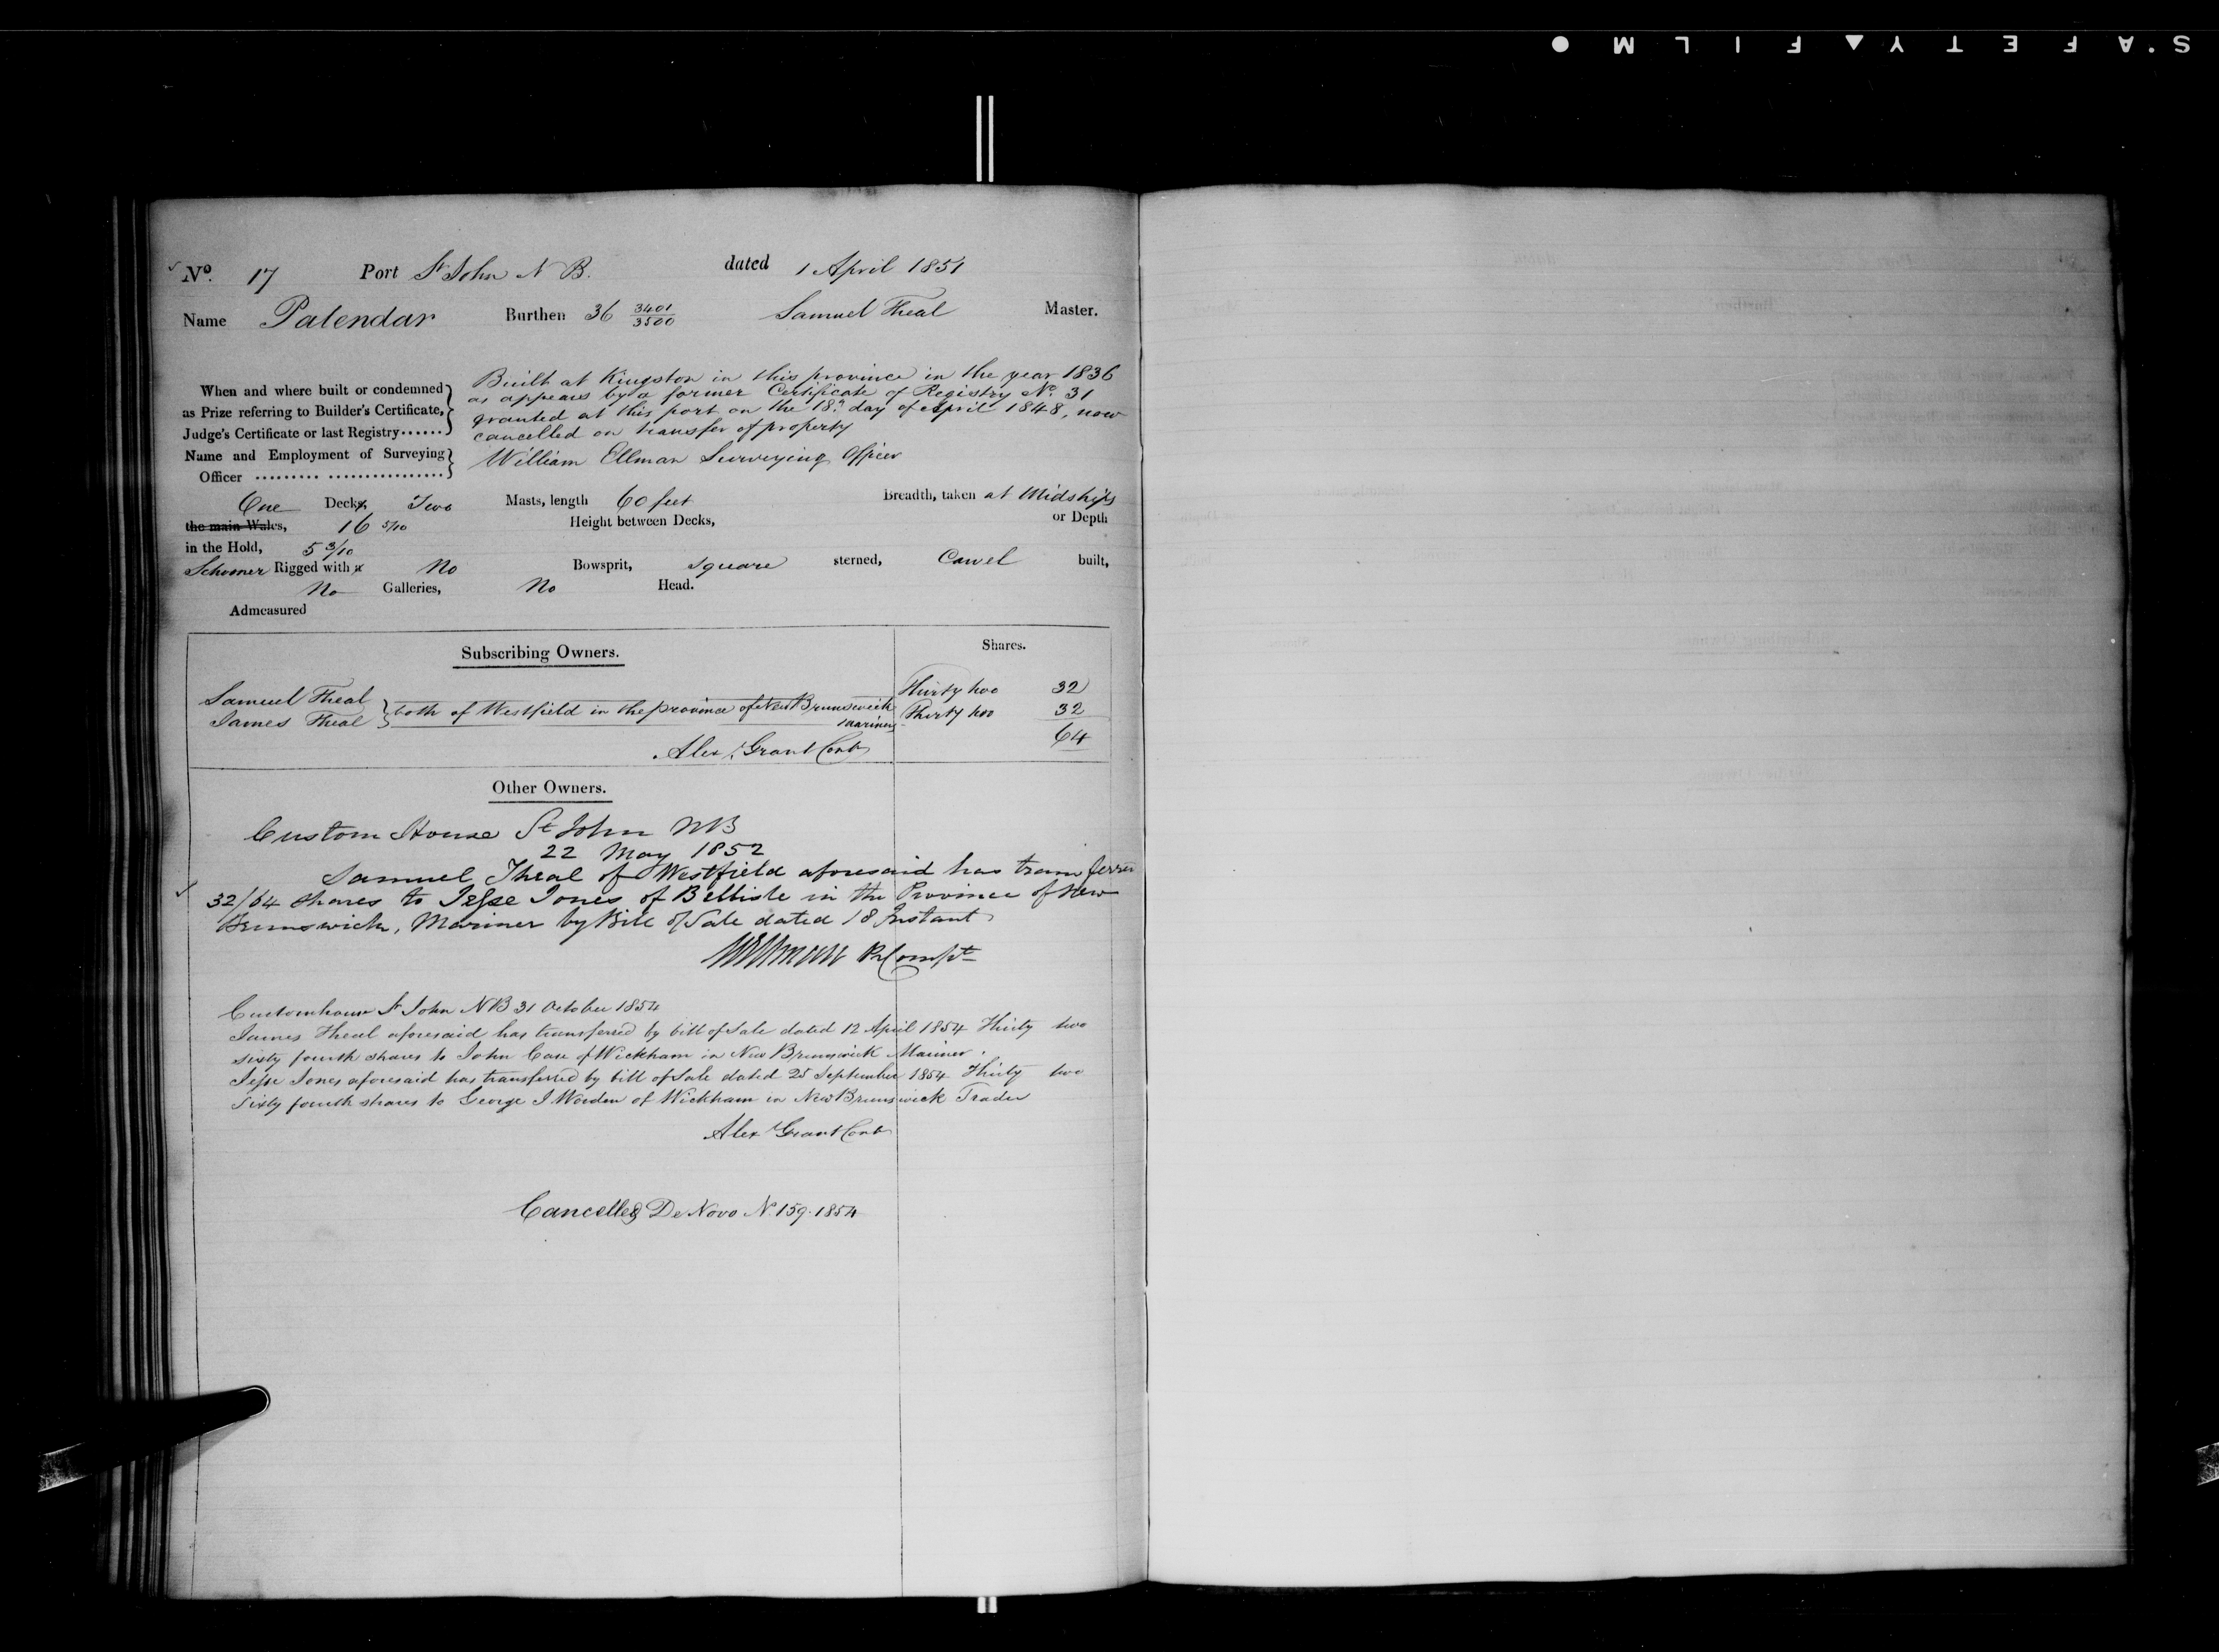 S'AFETY▲FILM ●
No. 17 Port St John N B. dated 1 April 1851
Name Palendar Burthen 36 3401/3500 Samuel Theal Master.
When and where built or condemned as Prize referring to Builder's Certificate, Judge's Certificate or last Registry......
Built at Kingston in this province in the year 1836
as appears by a former Certificate of Registry No. 31
granted at this port on the 18th day of April 1848, now
cancelled on transfer of property
Name and Employment of Surveying Officer ......... ................
William Ellman Surveying Officer
One Decks, Two Masts, length 60 feet Breadth, taken at Midships
the main Wales, 16 5/10 Height between Decks, or Depth
in the Hold, 5 3/10
Schooner Rigged with a No Bowsprit, square sterned, Carvel built,
No Galleries, No Head.
Admeasured
Subscribing Owners. Shares.
Samuel Theal Thirty two 32
James Theal } both of Westfield in the province of New Brunswick Thirty two 32
mariners
Alex Grant Cont 64
Other Owners.
Custom House St John NB
22 May 1852
Samuel Theal of Westfield aforesaid has transferred
32/64 shares to Jesse Jones of Bellisle in the Province of New
Brunswick, Mariner by Bill of Sale dated 18 Instant
WEllman
Customhouse St John NB 31 October 1854
James Theal aforesaid has transferred by bill of Sale dated 12 April 1854 Thirty two
sixty fourth shares to John Case of Wickham in New Brunswick Mariner.
Jesse Jones aforesaid has transferred by bill of Sale dated 25 September 1854 Thirty two
Sixty fourth shares to George J Worden of Wickham in New Brunswick Trader
Alex Grant Cont
Cancelled De Novo No 159. 1854